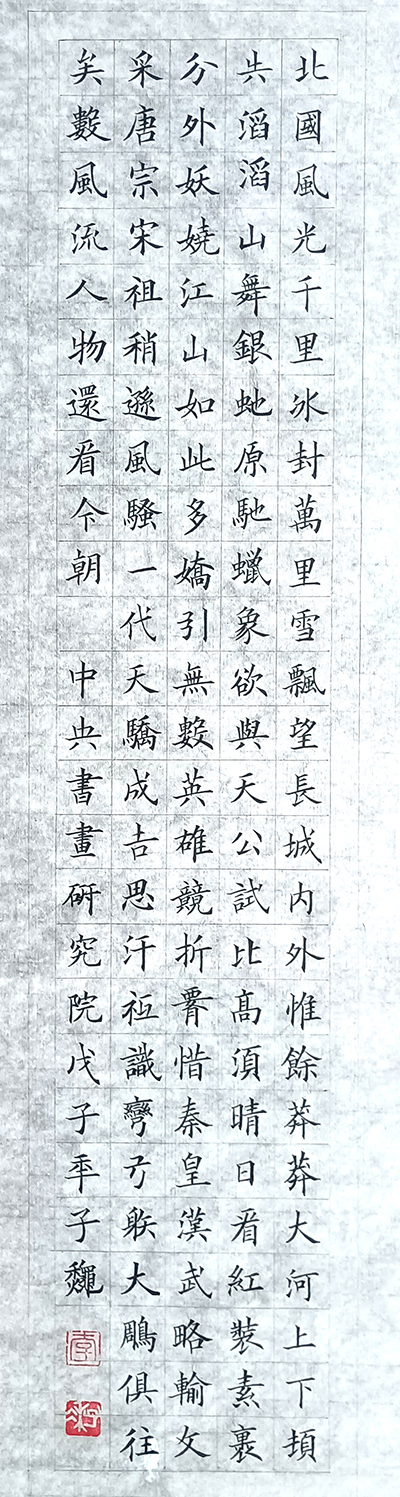 北國風光千里冰封萬里雪飄望長城内外惟餘莽莽大河上下頓
失滔滔山舞銀虵原馳蠟象欲與天公試比高須晴日看紅裝素裹
分外妖嬈江山如此多嬌引無數英雄競折腰惜秦皇漢武略輸文
采唐宗宋祖稍遜風騷一代天驕成吉思汗祇識彎弓射大鵰俱往
矣數風流人物還看今朝 中央書畫研究院戊子年子